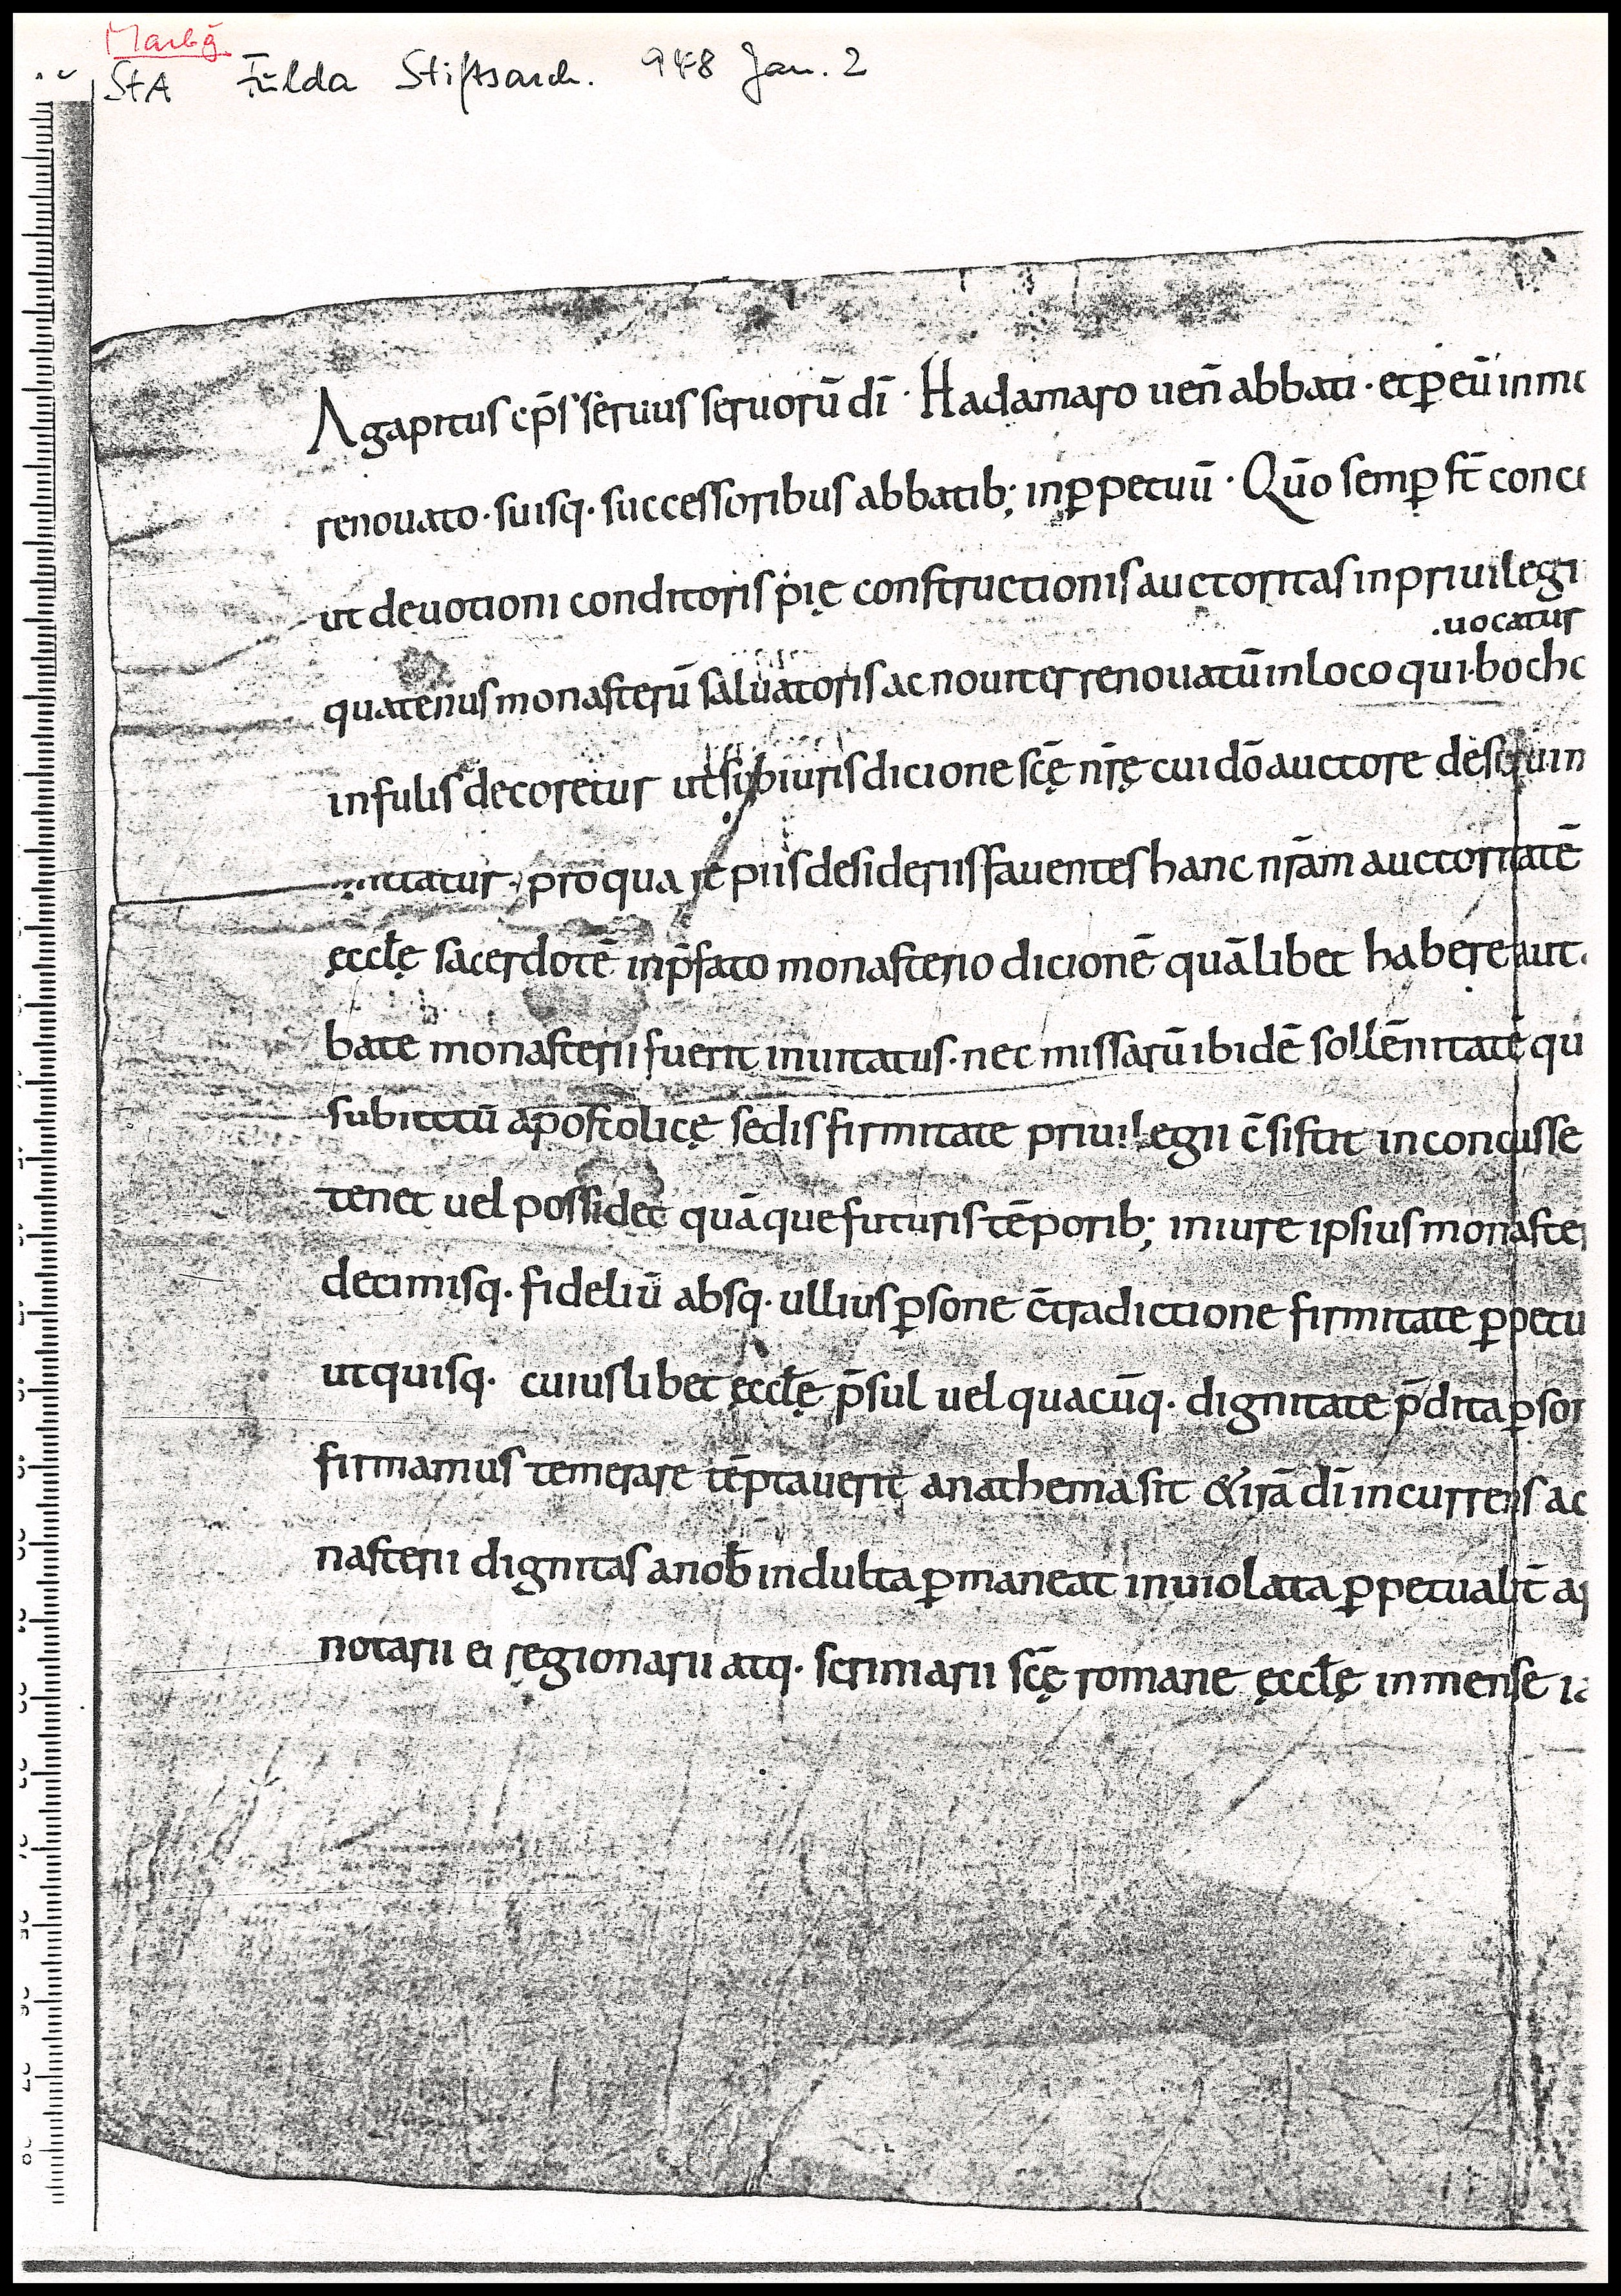 Marbg̅
StA Fulda Stiftsarch. 948 Jan. 2
Agapitus ep̅s seruus seruorū dī · Hadamaro uen̅ abbati · et ꝑ eū in mo
renouato · suisq· successoribus abbatib; in ꝑpetuū · Qūo semꝑ st̅ conce
ut deuotioni conditoris pię constructionis auctoritas in priuilegi
.uocatur
quatenus monasteriū saluatoris ac nouiter renouatū in loco qui· bocho
infulis decoretur ut sub iurisdicione sc̅ę nr̅ę cui dō auctore deseruim
mittatur · pro qua re piis desideriis fauentes hanc nr̅am auctoritatē
ęccl̅ę sacerdotē in p̅fato monasterio dicionē quālibet habere aut
bate monasterii fuerit inuitatus · nec missarū ibidē sollēnitatē qu
subiectū apostolicę sedis firmitate priuilegii c̅sistit inconcusse
tenet uel possidet quāque futuris tēporib; in iure ipsius monaster
decimisq· fideliū absq· ullius ꝑsone c̅tradictione firmitate ꝑpetu
ut quisq· cuiuslibet ęccl̅ę p̅sul uel quacūq· dignitate p̅dita ꝑson
firmamus temerare tēptauerit anathema sit & irā dī incurrens ac
nasterii dignitas a nob̅ indulta ꝑmaneat inuiolata ꝑpetualit̅ ap
notarii ei regionarii atq· scriniarii sc̅ę romane ęccl̅ę in mense ia